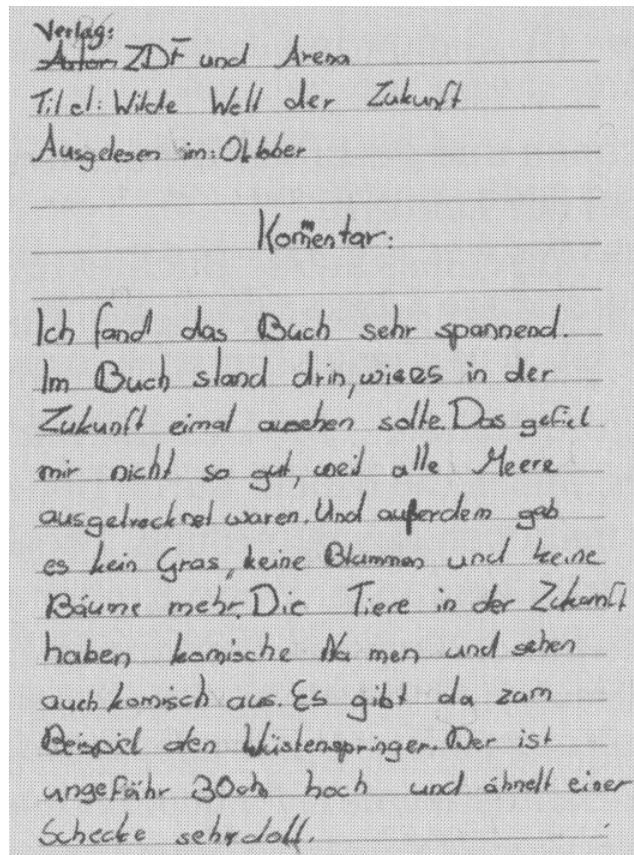 Verlag:
Autor: ZDF und Arena
Titel: Wilde Welt der Zukunft
Ausgelesen im: Oktober
Komentar:
Ich fand das Buch sehr spannend.
Im Buch stand drin, wie es in der
Zukunft eimal aussehen solte. Das gefiel
mir nicht so gut, weil alle Meere
ausgetrocknet waren. Und außerdem gab
es kein Gras, keine Blummen und keine
Bäume mehr. Die Tiere in der Zukunft
haben komische Namen und sehen
auch komisch aus. Es gibt da zum
Beispiel den Wüstenspringer. Der ist
ungefähr 30cm hoch und ähnelt einer
Schecke sehr doll.